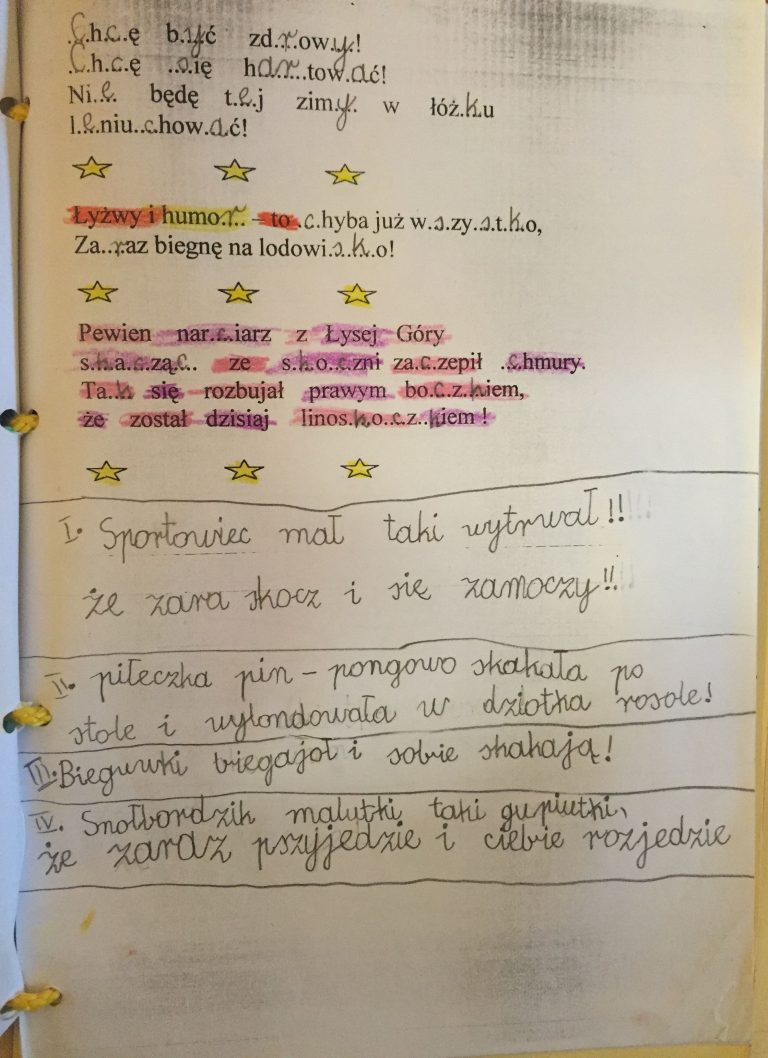 .C.h.c.ę b.y.ć zd.r.ow.y.!
.C.h.c.ę ..s.ię h.a.r..tow.a.ć!
Ni.e. będę t.e.j zim.y. w łóż.k.u
l.e.niu..c.how.a.ć!
Łyżwy i humo.r.. – to .c.hyba już w.s.zy.s.t.k.o,
Za..r.az biegnę na lodowi.s.k.o!
Pewien nar.c.iarz z Łysej Góry
s.k.a.c.zą.c.. ze s.k.o.c.zni za.c.zepił .c.hmury.
Ta.k się rozbujał prawym bo.c.z.k.iem,
że został dzisiaj linos.k.o.c.z..k.iem !
I. Sportowiec mał taki wytrwał!!
że zara skocz i się zamoczy!!
II. piłeczka pin – pongowo skakała po
stole i wylondowała w dziotka rosole!
III. Bieguwki biegajoł i sobie skakają!
IV. Snołbordzik malutki, taki gupiutki,
że zaraz pszyjedzie i ciebie rozjedzie